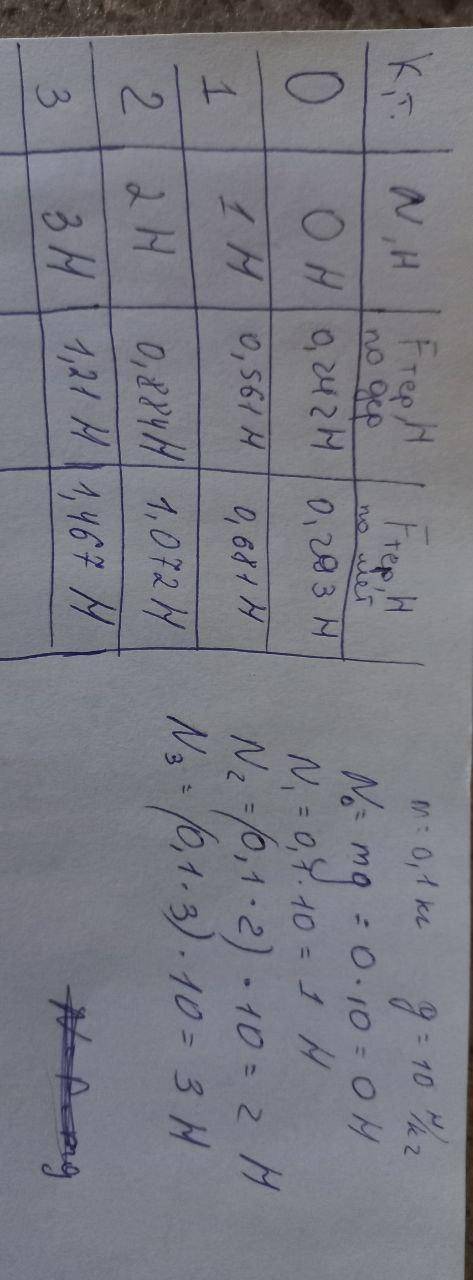 К,т. N,Н Fтер,Н по дер Fтер,Н по мет
0 0 Н 0,242 Н 0,293 Н
1 1 Н 0,561 Н 0,681 Н
2 2 Н 0,884 Н 1,072 Н
3 3 Н 1,21 Н 1,467 Н
m = 0,1 кг g = 10 Н/кг
N₀ = mg = 0·10 = 0 Н
N₁ = 0,1·10 = 1 Н
N₂ = (0,1·2)·10 = 2 Н
N₃ = (0,1·3)·10 = 3 Н